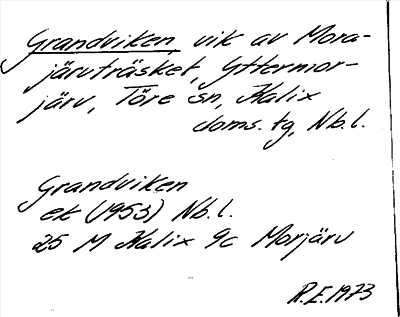 Grandviken, vik av Mora-
järvträsket, Yttermor-
järv, Töre sn, Kalix
doms. tg, Nb.l.
Grandviken
ek (1953) Nb.l.
25 M Kalix 9c Morjärv
R.E. 1973